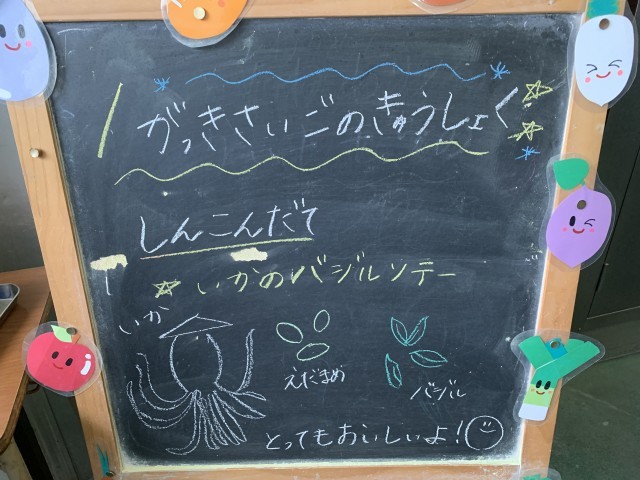 1がっきさいごのきゅうしょく
しんこんだて
☆いかのバジルソテー
いか
えだまめ
バジル
とってもおいしいよ!